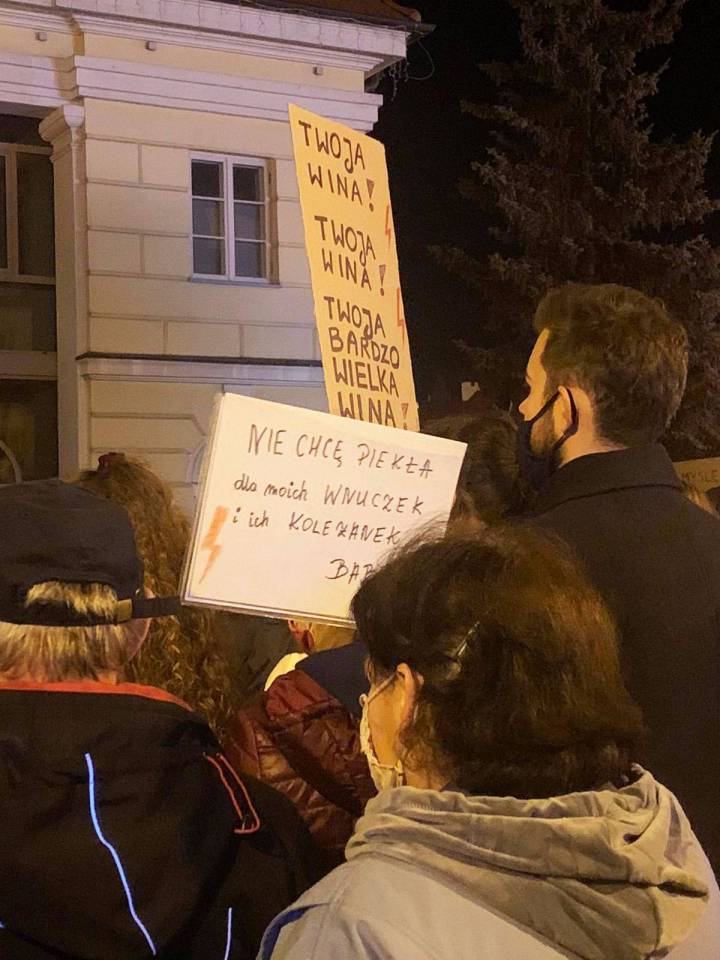 TWOJA
WINA!
TWOJA
WINA!
TWOJA
BARDZO
WIELKA
WINA!
NIE CHCĘ PIEKŁA
dla moich WNUCZEK
i ich KOLEŻANEK